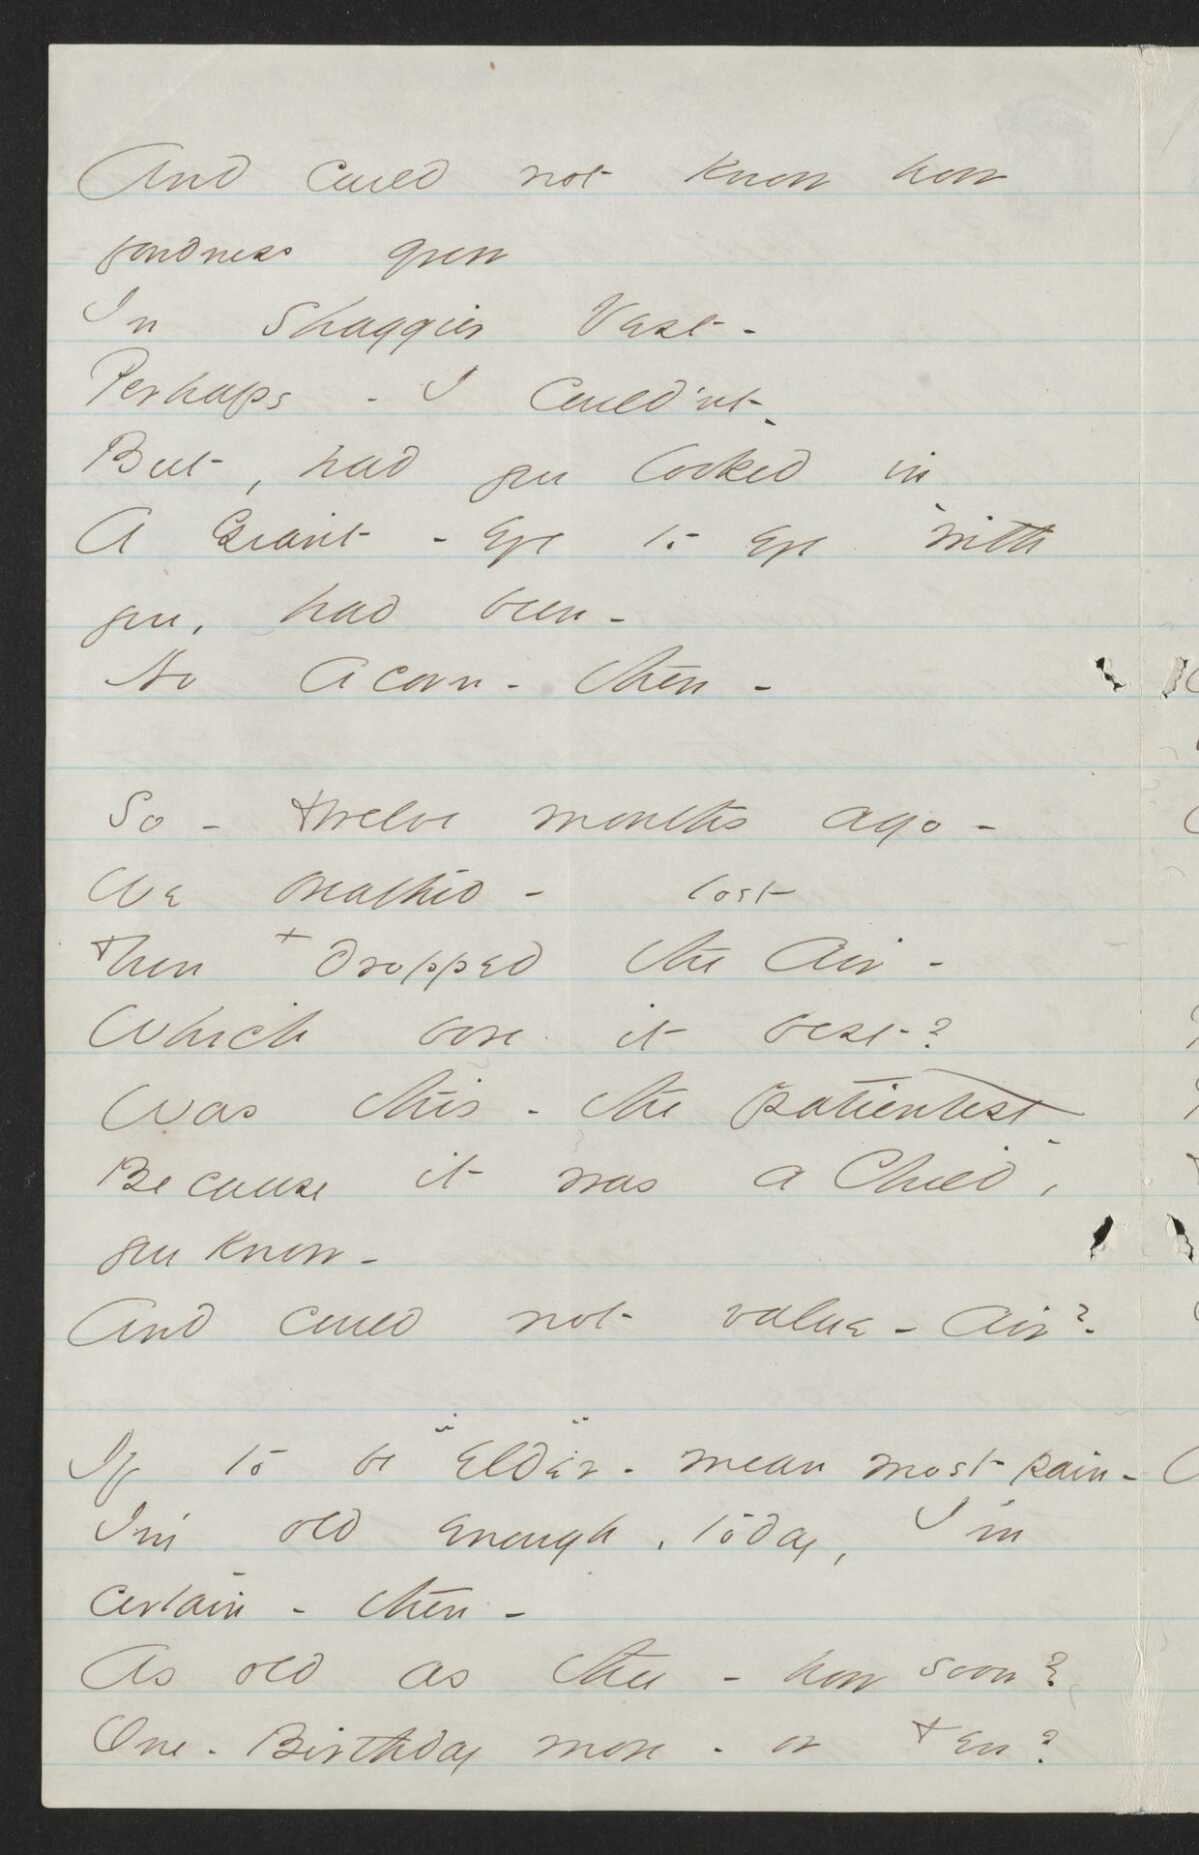 And could not know how
fondness grew
In Shaggier Vest -
Perhaps - I could'nt -
But, had you looked in
A Giant - eye to eye with
you, had been -
No Acorn - then -
So - twelve months ago -
We breathed - lost
Then + dropped the Air -
Which bore it best?
Was this - the patientest -
Because it was a Child,
you know -
And could not value - Air?
If to be "Elder" - mean most pain -
I'm old enough, today, I'm
certain - then -
As old as thee - how soon?
One - Birthday more - or ten?